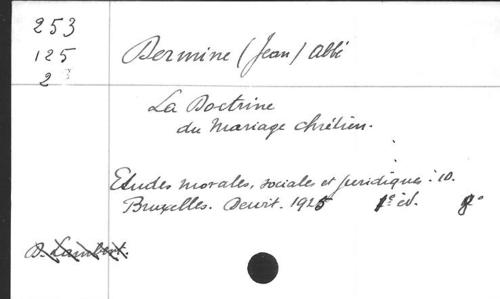 253
125
2
Dermine (Jean) Abbé
La Doctrine
du Mariage chrétien.
Etudes morales, sociales et juridiques: 10.
Bruxelles. Dewit. 1925 1e éd. 8°
D. Lambert.